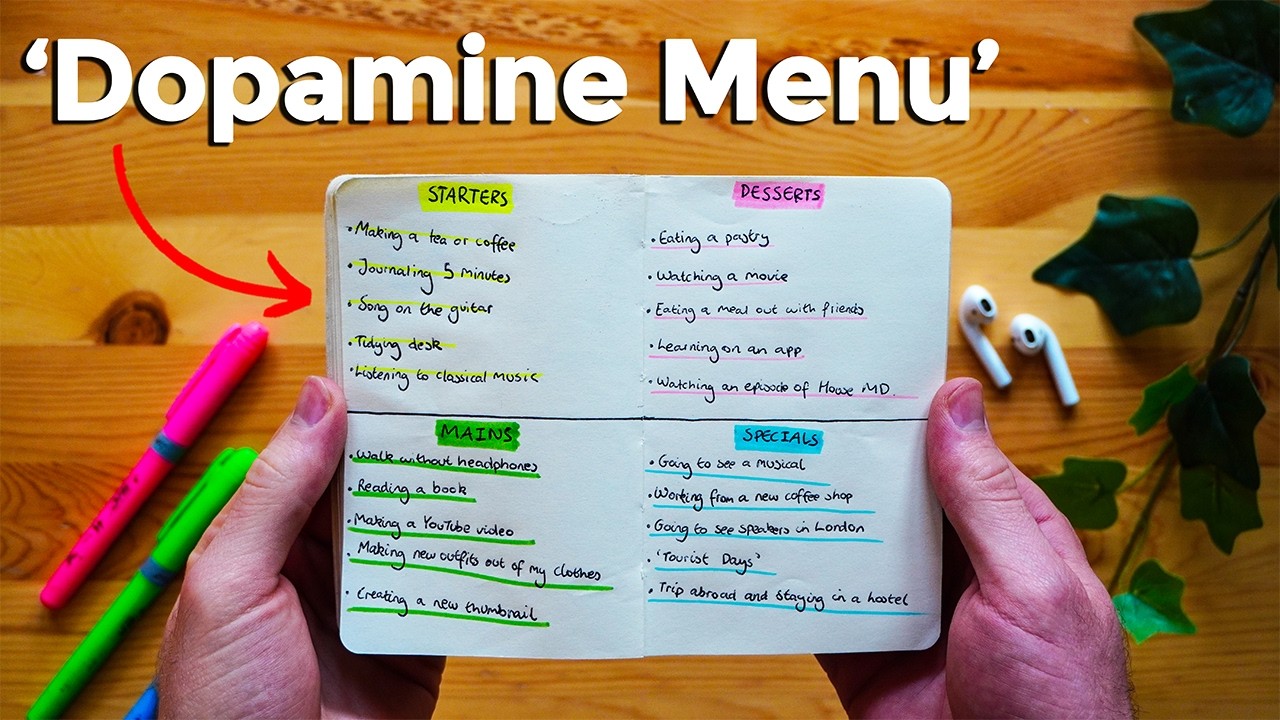 'Dopamine Menu'
STARTERS
• Making a tea or coffee
• Journaling 5 minutes
• Song on the guitar
• Tidying desk
• Listening to classical music
DESSERTS
• Eating a pastry
• Watching a movie
• Eating a meal out with friends
• Learning on an app
• Watching an episode of House MD.
MAINS
• Walk without headphones
• Reading a book
• Making a YouTube video
• Making new outfits out of my clothes
• Creating a new thumbnail
SPECIALS
• Going to see a musical
• Working from a new coffee shop
• Going to see speakers in London
• 'Tourist Days'
• Trip abroad and staying in a hostel